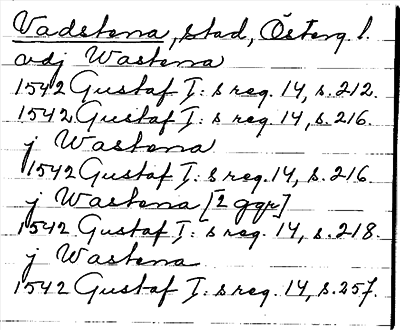 Vadstena, stad, Österg l.
vdj Wastena
1542 Gustaf I:s reg. 14, s. 212.
1542 Gustaf I:s reg. 14, s. 216.
j Wastena
1542 Gustaf I:s reg. 14, s. 216
j Wastena [2 ggr]
1542 Gustaf I:s reg. 14, s. 218.
j Wastena
1542 Gustaf I:s reg. 14, s. 257.